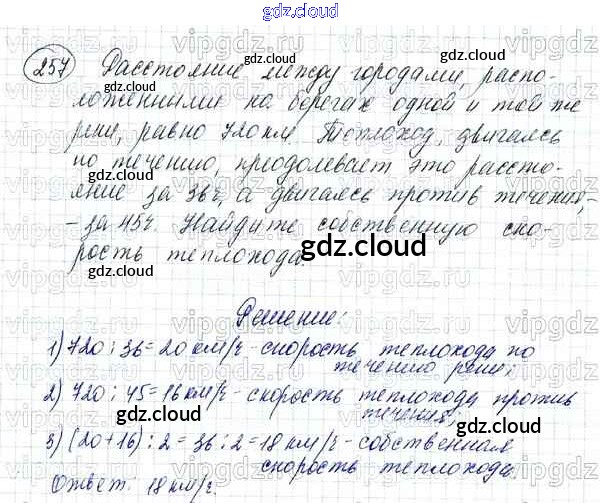 gdz.cloud
257 Расстояние между городами, распо-
ложенными на берегах одной и той же
реки, равно 720 км. Теплоход, двигаясь
по течению, преодолевает это рассто-
яние за 36ч, а двигаясь против течения,
- за 45ч. Найдите собственную ско-
рость теплохода.
Решение:
1) 720 : 36 = 20 км/ч - скорость теплохода по
течению реки;
2) 720 : 45 = 16 км/ч - скорость теплохода против
течения;
3) (20 + 16) : 2 = 36 : 2 = 18 км/ч - собственная
скорость теплохода.
Ответ: 18 км/ч.